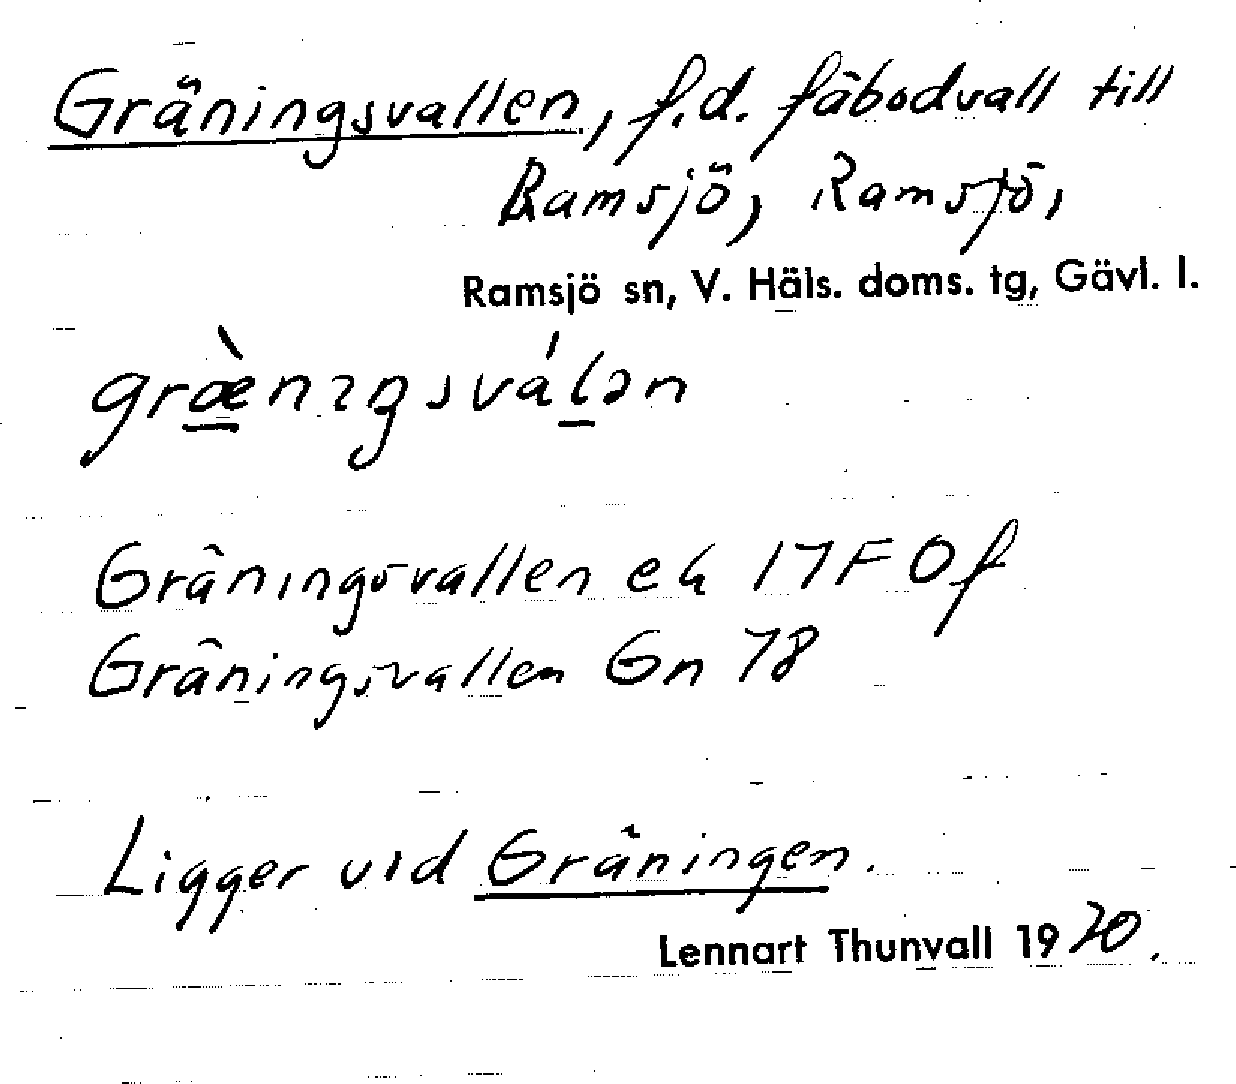 Gräningsvallen, f.d. fäbodvall till
Ramsjö, Ramsjö,
Ramsjö sn, V. Häls. doms. tg, Gävl. l.
græ̀nıŋsválən
Gräningsvallen ek 17F 0f
Gräningsvallen Gn 78
Ligger vid Gräningen.
Lennart Thunvall 1970.